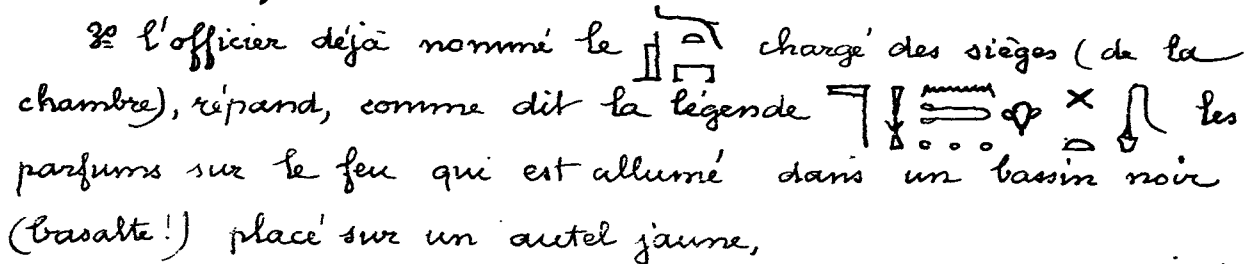 3º l'officier déjà nommé le chargé des sièges (de la
chambre), répand, comme dit la légende les
parfums sur le feu qui est allumé dans un bassin noir
(basalte!) placé sur un autel jaune,